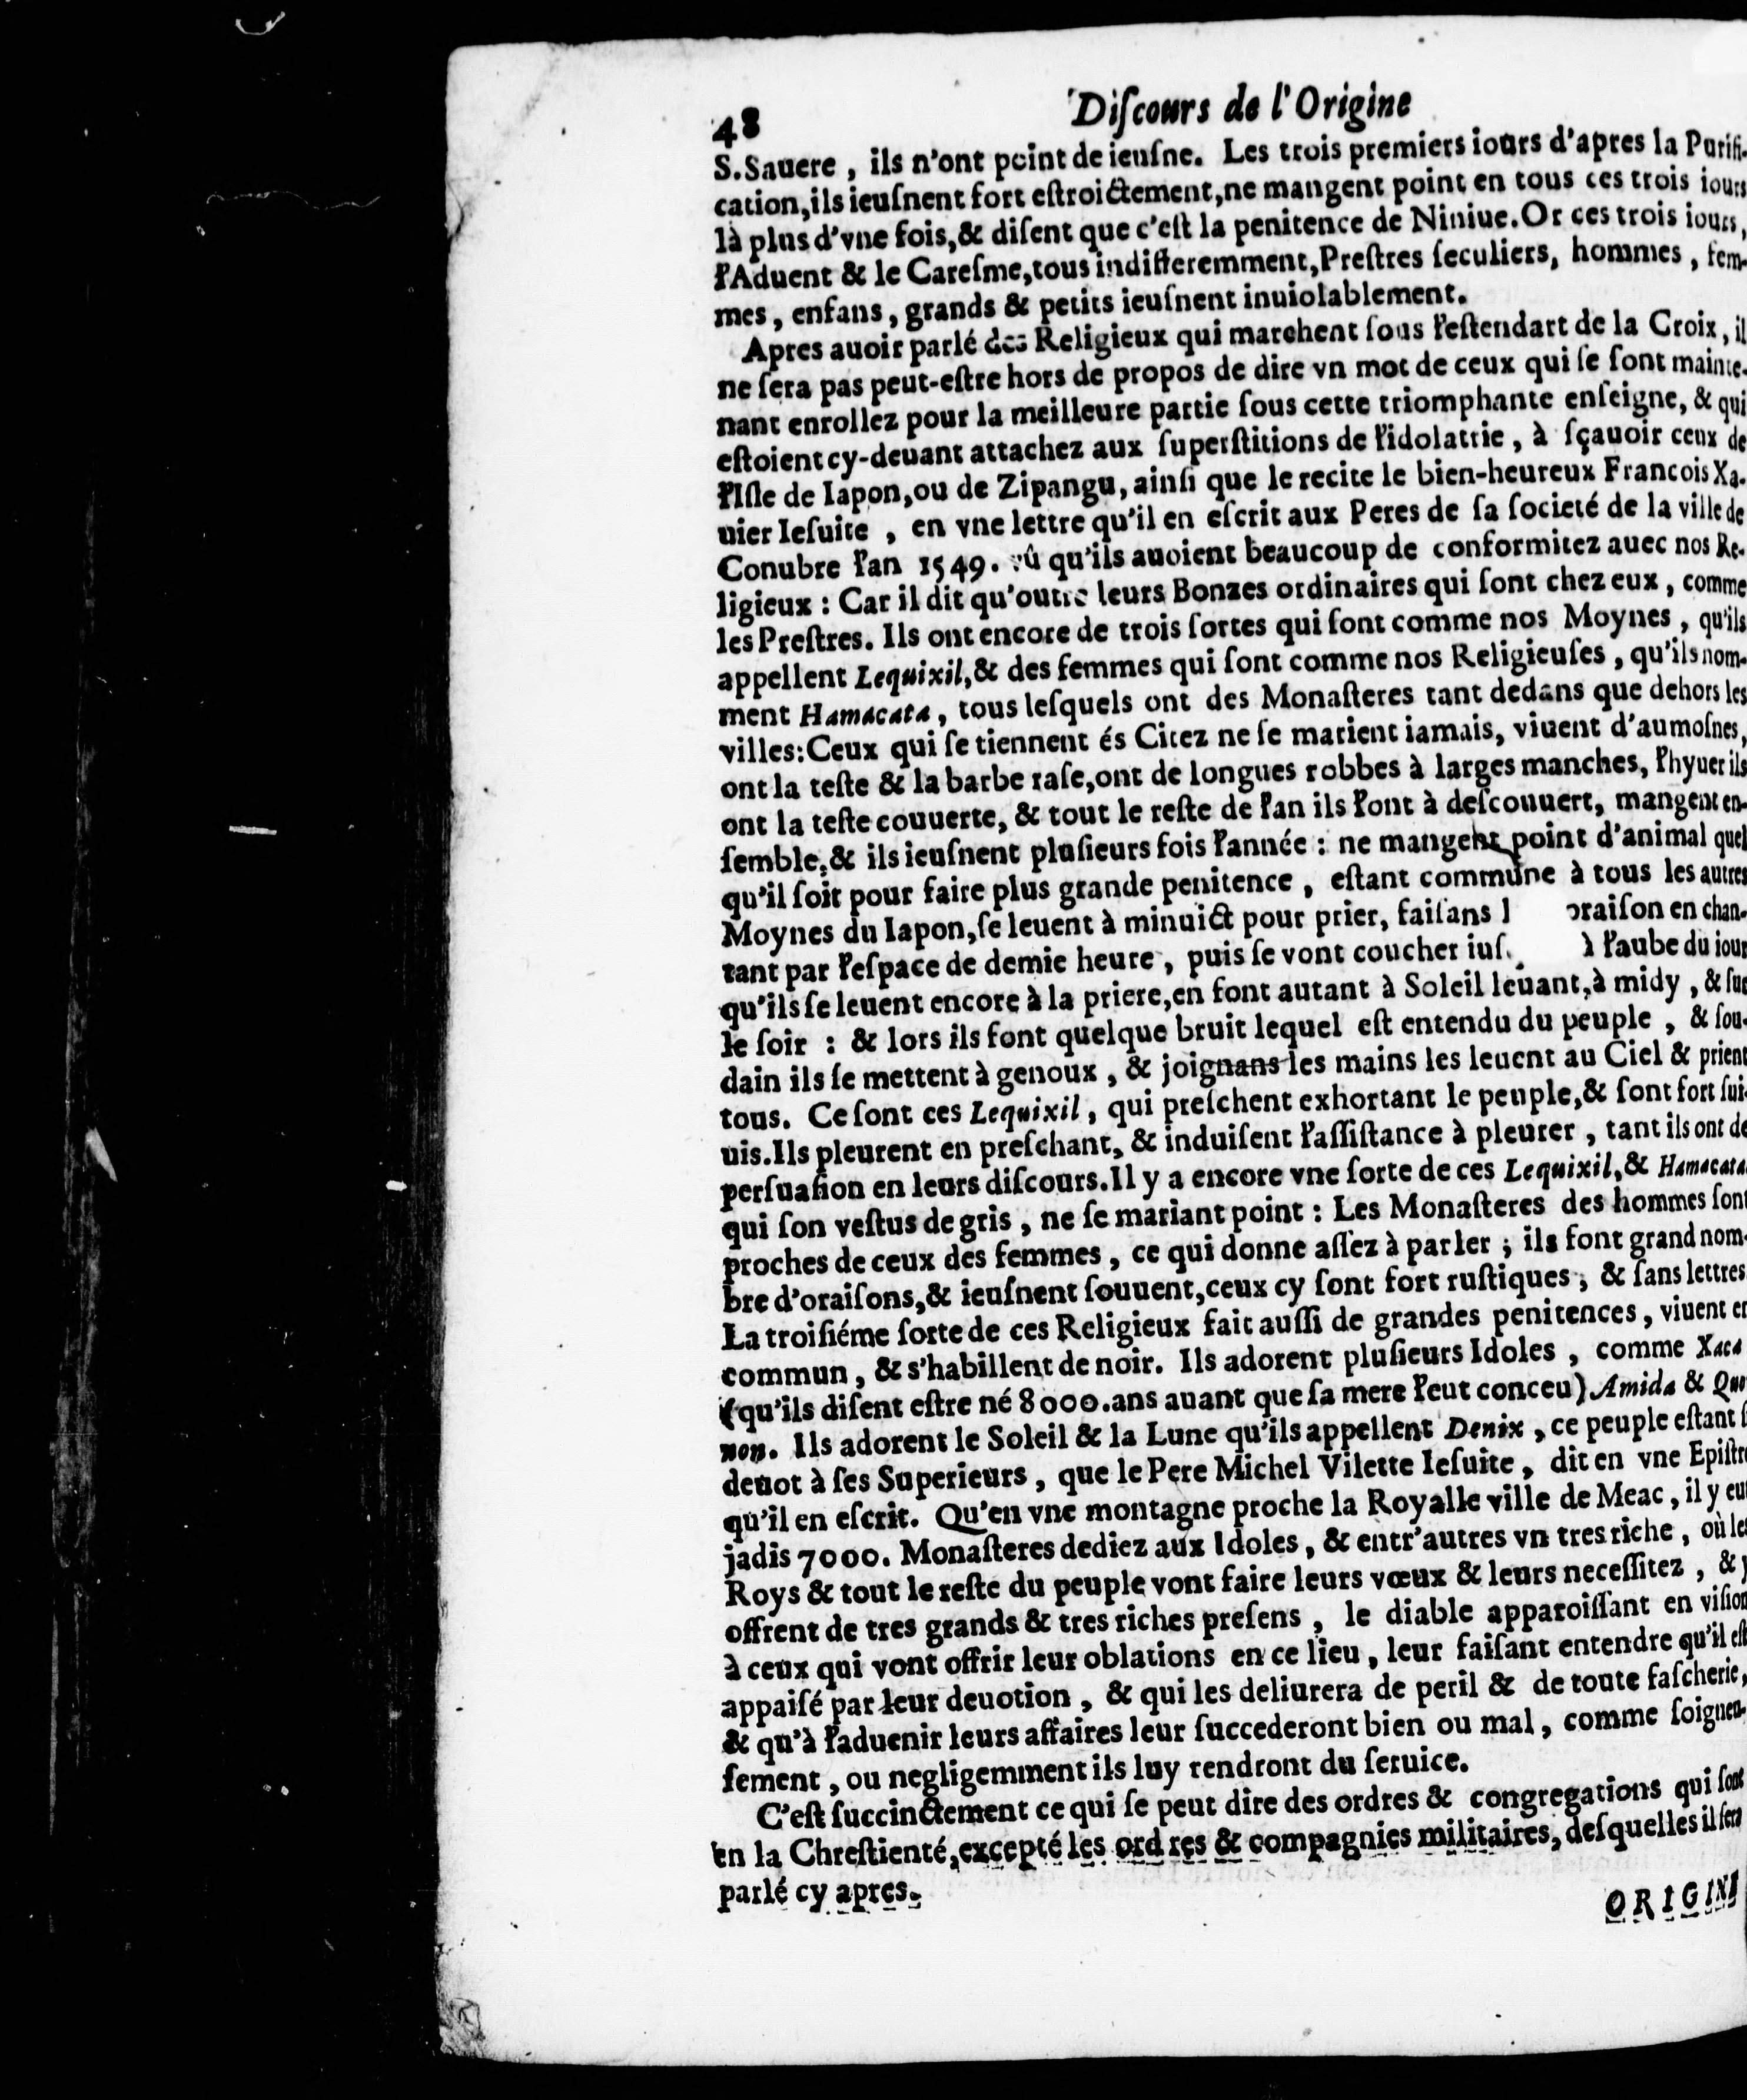 48 Diſcours de l'Origine
S. Sauere, ils n'ont point de ieuſne. Les trois premiers iours d'apres la Purifi-
cation, ils ieuſnent fort eſtroictement, ne mangent point en tous ces trois iours
là plus d'vne fois, & diſent que c'eſt la penitence de Niniue. Or ces trois iours,
l'Aduent & le Careſme, tous indifferemment, Preſtres ſeculiers, hommes, fem-
mes, enfans, grands & petits ieuſnent inuiolablement.
Apres auoir parlé des Religieux qui marchent ſous l'eſtendart de la Croix, il
ne ſera pas peut-eſtre hors de propos de dire vn mot de ceux qui ſe ſont mainte-
nant enrollez pour la meilleure partie ſous cette triomphante enſeigne, & qui
eſtoient cy-deuant attachez aux ſuperſtitions de l'idolatrie, à ſçauoir ceux de
l'Iſle de Iapon, ou de Zipangu, ainſi que le recite le bien-heureux Francois Xa-
uier Ieſuite, en vne lettre qu'il en eſcrit aux Peres de ſa ſocieté de la ville de
Conubre l'an 1549. vû qu'ils auoient beaucoup de conformitez auec nos Re-
ligieux: Car il dit qu'outre leurs Bonzes ordinaires qui ſont chez eux, comme
les Preſtres. Ils ont encore de trois ſortes qui ſont comme nos Moynes, qu'ils
appellent Lequixil, & des femmes qui ſont comme nos Religieuſes, qu'ils nom-
ment Hamacata, tous leſquels ont des Monaſteres tant dedans que dehors les
villes: Ceux qui ſe tiennent és Citez ne ſe marient iamais, viuent d'aumoſnes,
ont la teſte & la barbe raſe, ont de longues robbes à larges manches, l'hyuer ils
ont la teſte couuerte, & tout le reſte de l'an ils l'ont à deſcouuert, mangent en-
ſemble, & ils ieuſnent pluſieurs fois l'année: ne mangent point d'animal quel
qu'il ſoit pour faire plus grande penitence, eſtant commune à tous les autres
Moynes du Iapon, ſe leuent à minuict pour prier, faiſans l oraiſon en chan-
tant par l'eſpace de demie heure, puis ſe vont coucher iuſ à l'aube du iour
qu'ils ſe leuent encore à la priere, en font autant à Soleil leuant, à midy, & ſur
le ſoir: & lors ils font quelque bruit lequel eſt entendu du peuple, & ſou-
dain ils ſe mettent à genoux, & joignans les mains les leuent au Ciel & prient
tous. Ce ſont ces Lequixil, qui preſchent exhortant le peuple, & ſont fort ſui-
uis. Ils pleurent en preſchant, & induiſent l'aſſiſtance à pleurer, tant ils ont de
perſuaſion en leurs diſcours. Il y a encore vne ſorte de ces Lequixil, & Hamacata
qui ſon veſtus de gris, ne ſe mariant point: Les Monaſteres des hommes ſont
proches de ceux des femmes, ce qui donne aſſez à parler; ils font grand nom-
bre d'oraiſons, & ieuſnent ſouuent, ceux cy ſont fort ruſtiques, & ſans lettres
La troiſiéme ſorte de ces Religieux fait auſſi de grandes penitences, viuent en
commun, & s'habillent de noir. Ils adorent pluſieurs Idoles, comme Xaca
(qu'ils diſent eſtre né 8000. ans auant que ſa mere l'eut conceu) Amida & Qua
non. Ils adorent le Soleil & la Lune qu'ils appellent Denix, ce peuple eſtant ſ
deuot à ſes Superieurs, que le Pere Michel Vilette Ieſuite, dit en vne Epiſtre
qu'il en eſcrit. Qu'en vne montagne proche la Royalle ville de Meac, il y eut
jadis 7000. Monaſteres dediez aux Idoles, & entr'autres vn tres riche, où les
Roys & tout le reſte du peuple vont faire leurs vœux & leurs neceſſitez, & y
offrent de tres grands & tres riches preſens, le diable apparoiſſant en viſion
à ceux qui vont offrir leur oblations en ce lieu, leur faiſant entendre qu'il eſt
appaiſé par leur deuotion, & qui les deliurera de peril & de toute faſcherie,
& qu'à l'aduenir leurs affaires leur ſuccederont bien ou mal, comme ſoigneu-
ſement, ou negligemment ils luy rendront du ſeruice.
C'eſt ſuccinctement ce qui ſe peut dire des ordres & congregations qui ſont
en la Chreſtienté, excepté les ord res & compagnies militaires, deſquelles il ſera
parlé cy apres.
ORIGINE